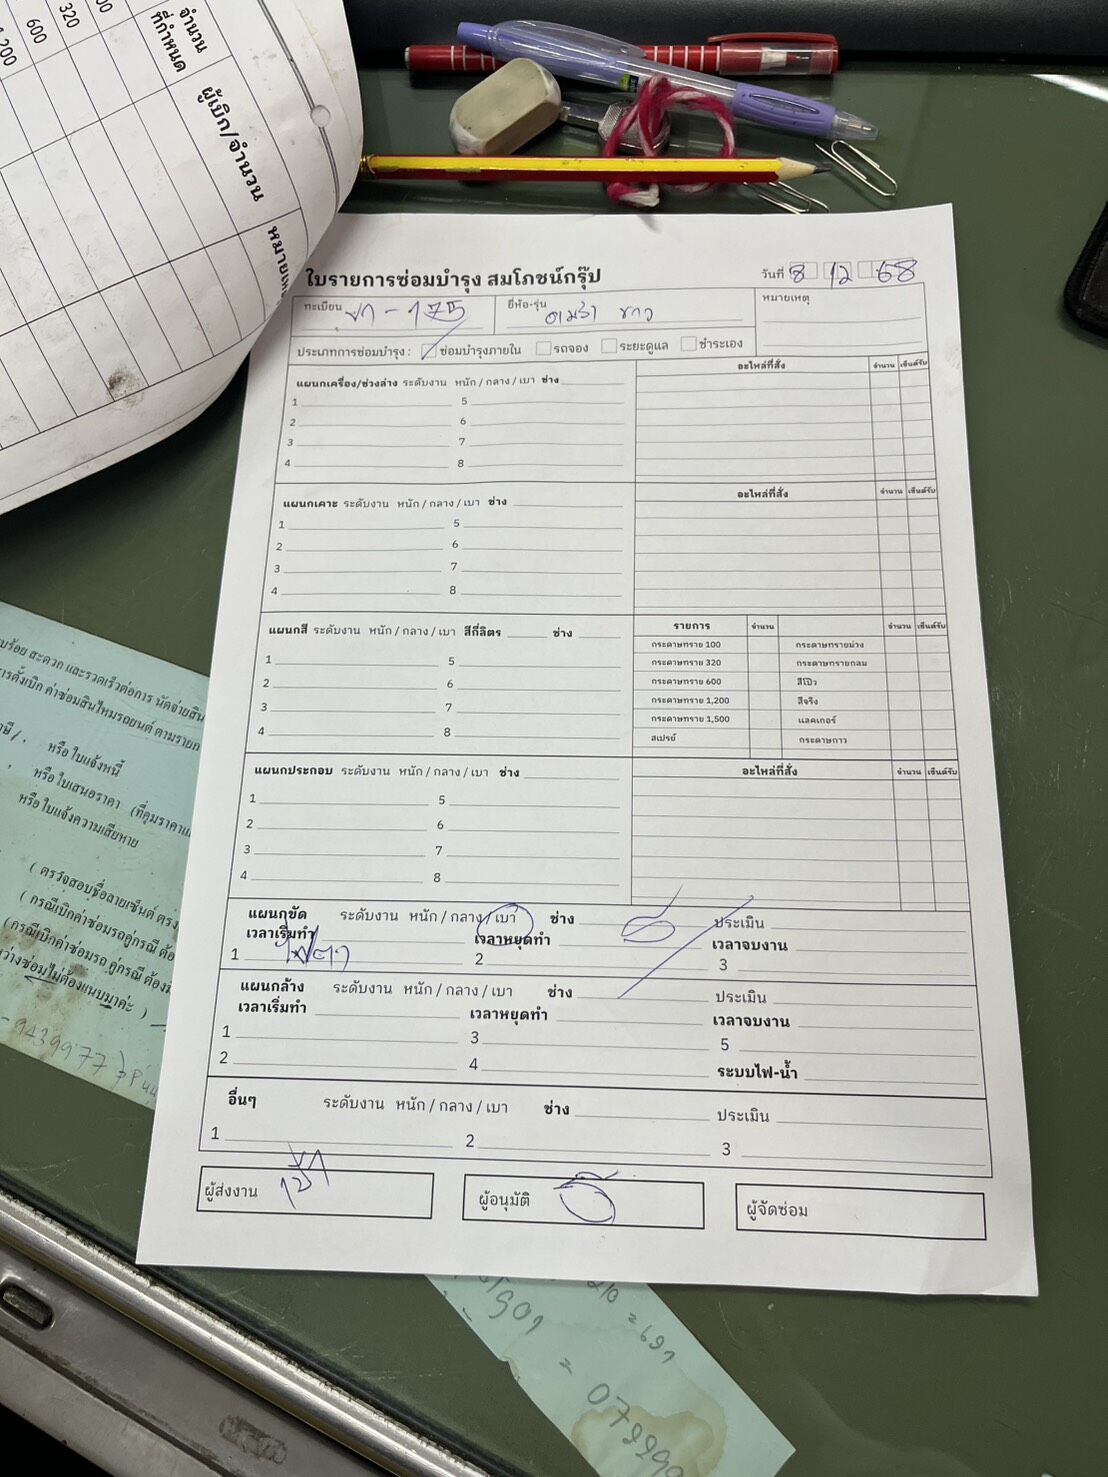 จำนวน
ที่กำหนด
ผู้เบิก/จำนวน
320
600
200
ใบรายการซ่อมบำรุง สมโภชน์กรุ๊ป
วันที่ 8 12 68
ทะเบียน
ยี่ห้อ-รุ่น
หมายเหตุ
ประเภทการซ่อมบำรุง : ซ่อมบำรุงภายใน รถจอง ระยะดูแล ชำระเอง
แผนกเครื่อง/ช่วงล่าง ระดับงาน หนัก / กลาง / เบา ช่าง
อะไหล่ที่สั่ง จำนวน เซ็นต์รับ
1 5
2 6
3 7
4 8
แผนกเคาะ ระดับงาน หนัก / กลาง / เบา ช่าง
อะไหล่ที่สั่ง จำนวน เซ็นต์รับ
1 5
2 6
3 7
4 8
แผนกสี ระดับงาน หนัก / กลาง / เบา สีกี่ลิตร ช่าง
รายการ จำนวน จำนวน เซ็นต์รับ
กระดาษทราย 100 กระดาษทรายม่วง
กระดาษทราย 320 กระดาษทรายกลม
กระดาษทราย 600 สีโป๊ว
กระดาษทราย 1,200 สีจริง
กระดาษทราย 1,500 แลคเกอร์
สเปรย์ กระดาษกาว
1 5
2 6
3 7
4 8
แผนกประกอบ ระดับงาน หนัก / กลาง / เบา ช่าง
อะไหล่ที่สั่ง จำนวน เซ็นต์รับ
1 5
2 6
3 7
4 8
แผนกขัด ระดับงาน หนัก / กลาง / เบา ช่าง ประเมิน
เวลาเริ่มทำ เวลาหยุดทำ เวลาจบงาน
1 2 3
แผนกล้าง ระดับงาน หนัก / กลาง / เบา ช่าง ประเมิน
เวลาเริ่มทำ เวลาหยุดทำ เวลาจบงาน
1 3 5
2 4 ระบบไฟ-น้ำ
อื่นๆ ระดับงาน หนัก / กลาง / เบา ช่าง ประเมิน
1 2 3
ผู้ส่งงาน ผู้อนุมัติ ผู้จัดซ่อม
สะดวก และรวดเร็วต่อการ นัดจ่ายสิน
ค่าซ่อมสินไหมรถยนต์ ตามราย
หรือ ใบแจ้งหนี้
หรือ ใบเสนอราคา (ที่คุมราคา
หรือ ใบแจ้งความเสียหาย
( ตรวจสอบชื่อลายเซ็นต์ ตรง
( กรณีเบิกค่าซ่อมรถคู่กรณี ต้อ
(กรณีเบิกค่าซ่อมรถ คู่กรณี ต้อง
ว่างซ่อมไม่ต้องแนบมาค่ะ )